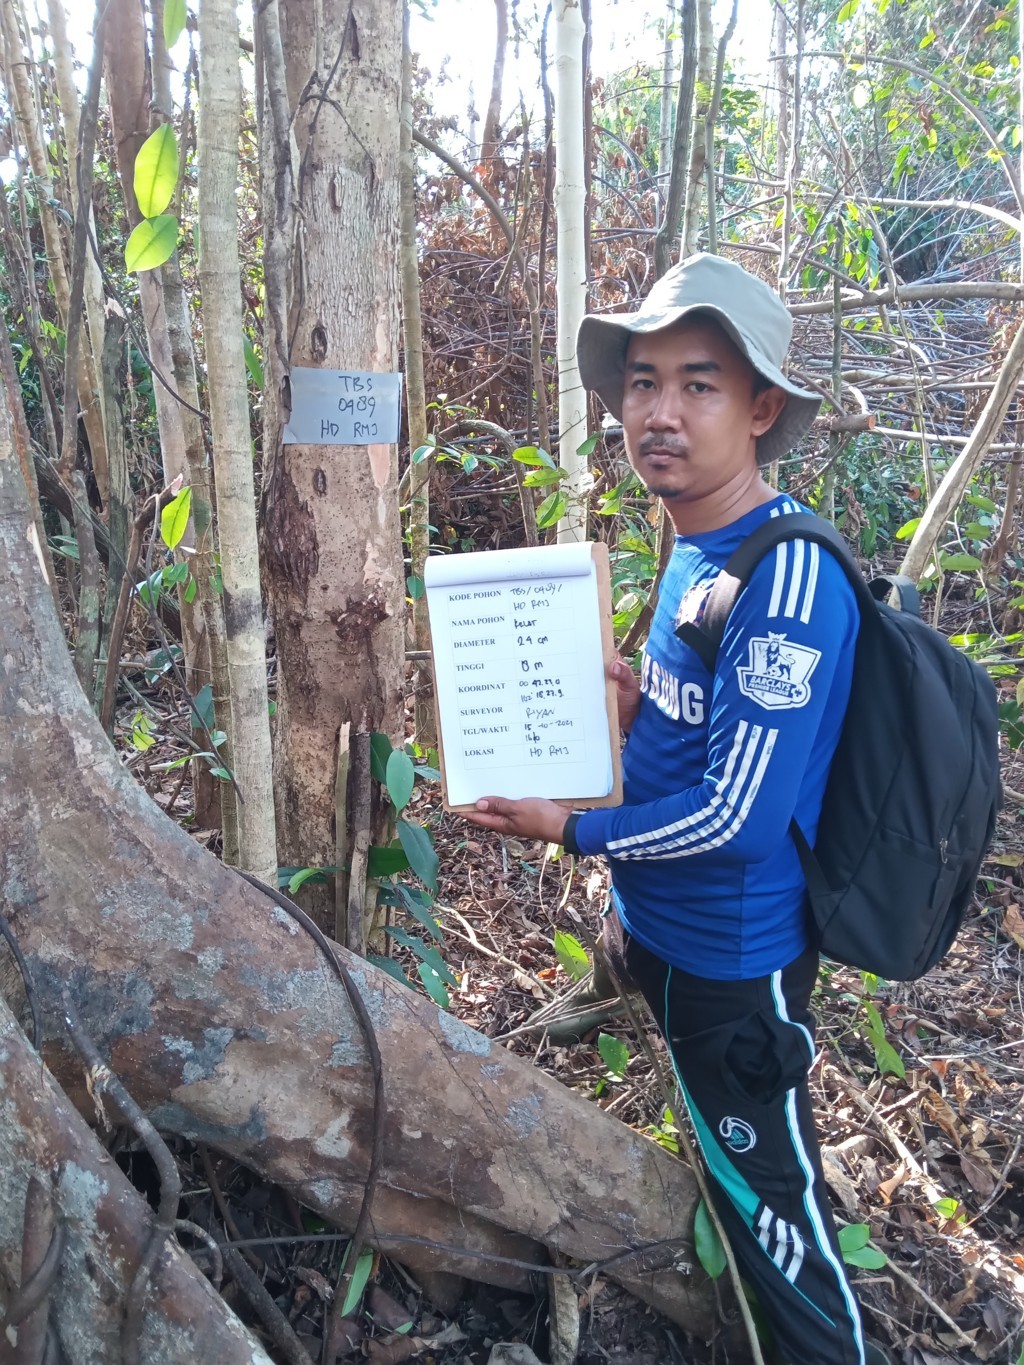 TBS
0489
HD RMJ
KODE POHON TBS/0489/
HD RMJ
NAMA POHON Kelat
DIAMETER 24 cm
TINGGI 8 m
KOORDINAT 00 42.27.0
102 15.27.9
SURVEYOR RIYAN
TGL/WAKTU 15-10-2021
LOKASI HD RMJ
SUNG
BARCLAYS
PREMIER LEAGUE
adidas